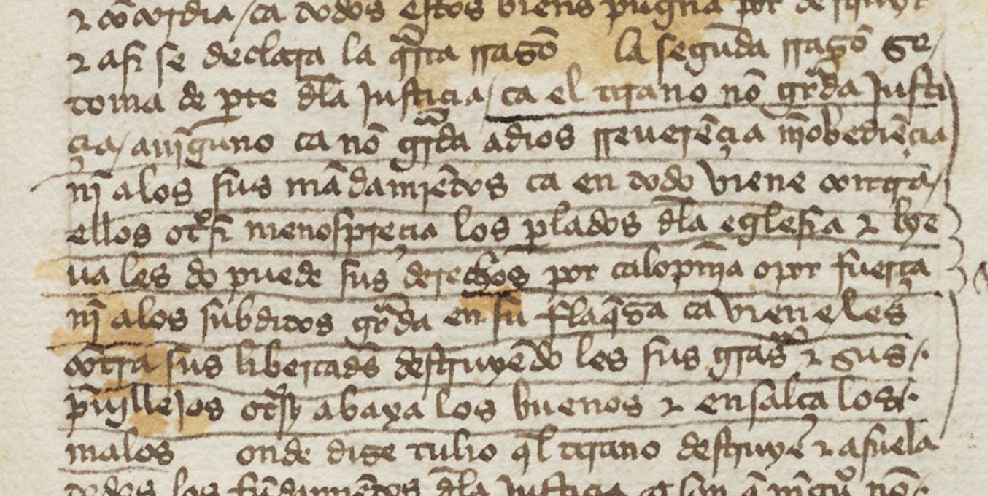 & cõcordia / ca todos estos viene pugna por
& asi se declara la q̃rta rrazõ la segũda rrazõ se /
toma de p̱te d̃la justiçia / ca el tirano nõ gr̃da justi
çia / a nĩguno ca nõ gr̃da a dios rreuerẽçia nĩ obediẽçia
nĩ a los sus mãdamiẽtos ca en todo viene contra /
ellos otᵒsi menospreçia los p̱lados d̃la eglesia & lie
ua les do puede sus derechos por calopnĩa o por fuerça
nĩ a los subditos gr̃da en su flaq̃za ca viene les
contra sus libertads̃ destruyẽdo les sus gr̃as & sus
p̃uillejos otᵒsy abaxa los buenos & ensalça los
malos onde dize tulio q̃l tirano destruye & asuela
todos los fũdamiẽtos d̃la justiçia